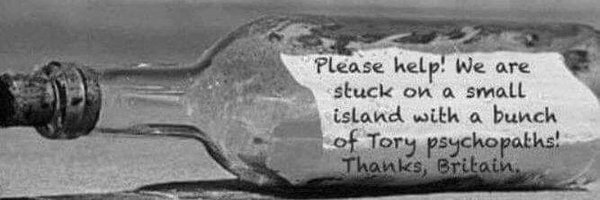 Please help! We are
stuck on a small
island with a bunch
of Tory psychopaths!
Thanks, Britain.